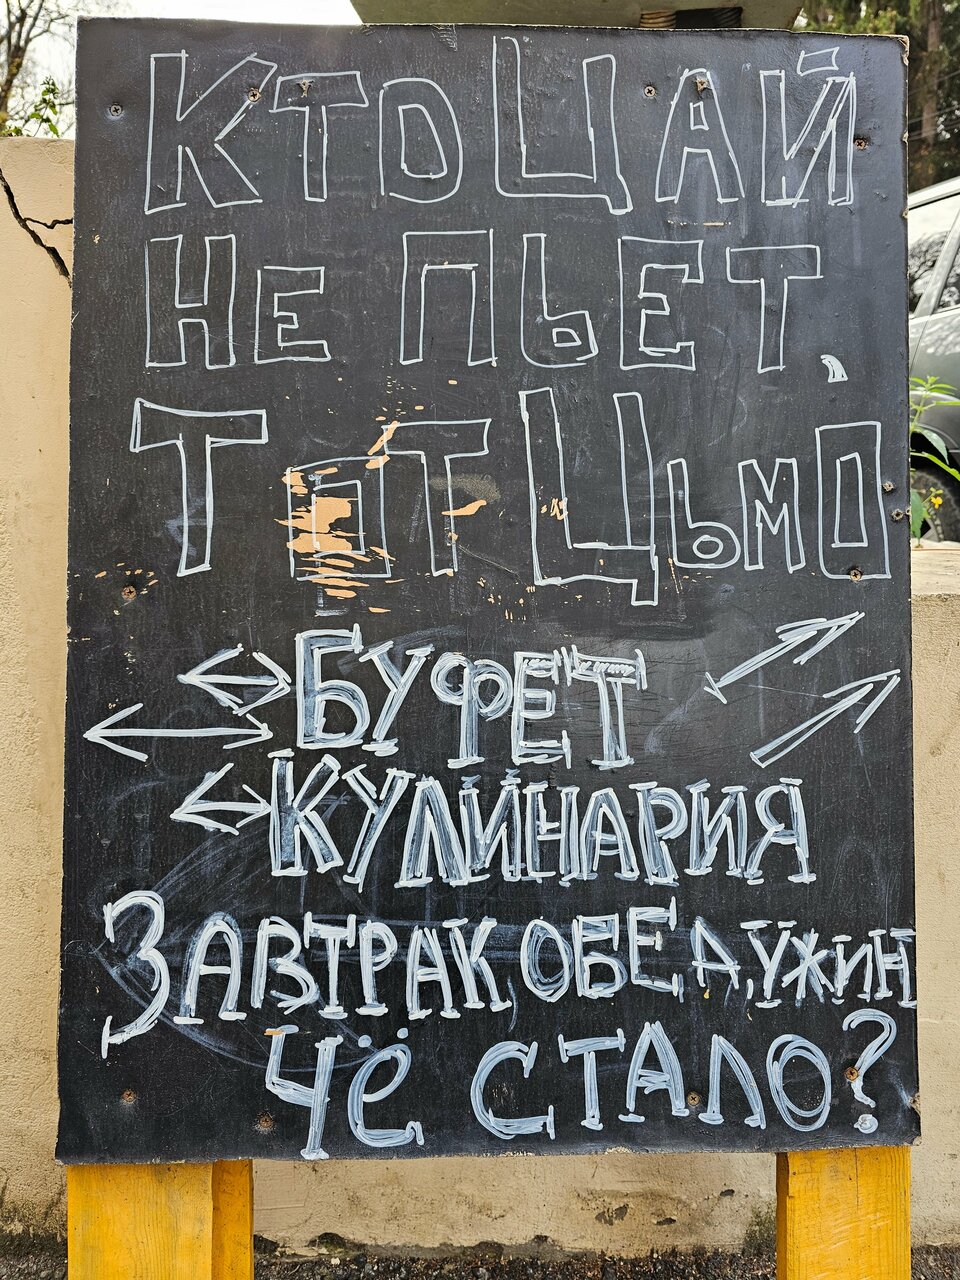 КТО ЦАЙ
НЕ ПЬЕТ,
ТОТ ЦЬМО
БУФЕТ
КУЛЙНАРИЯ
ЗАВТРАК, ОБЕД, УЖИН
ЧЁ СТАЛО?